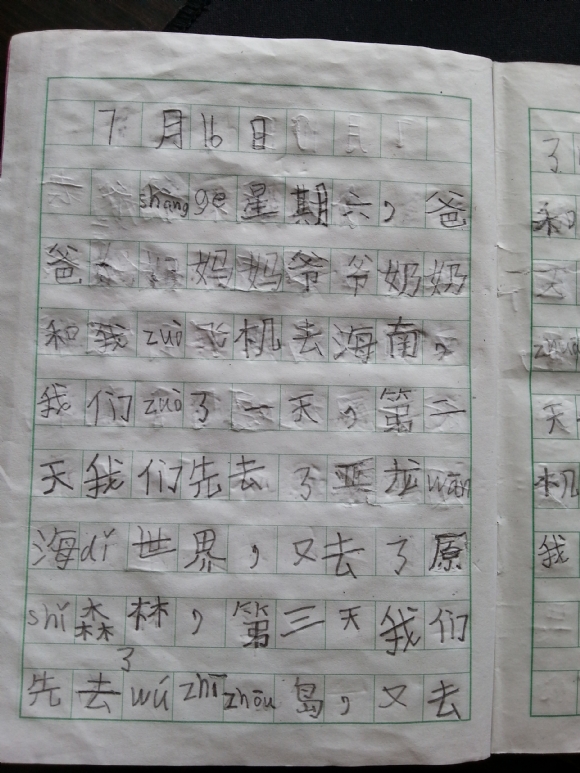 7月16日
shàng ge 星期六，爸
爸妈妈爷爷奶奶
和我zuò飞机去海南，
我们zuò了一天，第二
天我们先去了亚龙wān
海dǐ世界，又去了原
shǐ森林，第三天我们
先去了wú zhī zhōu岛，又去
了
和
天
机
我